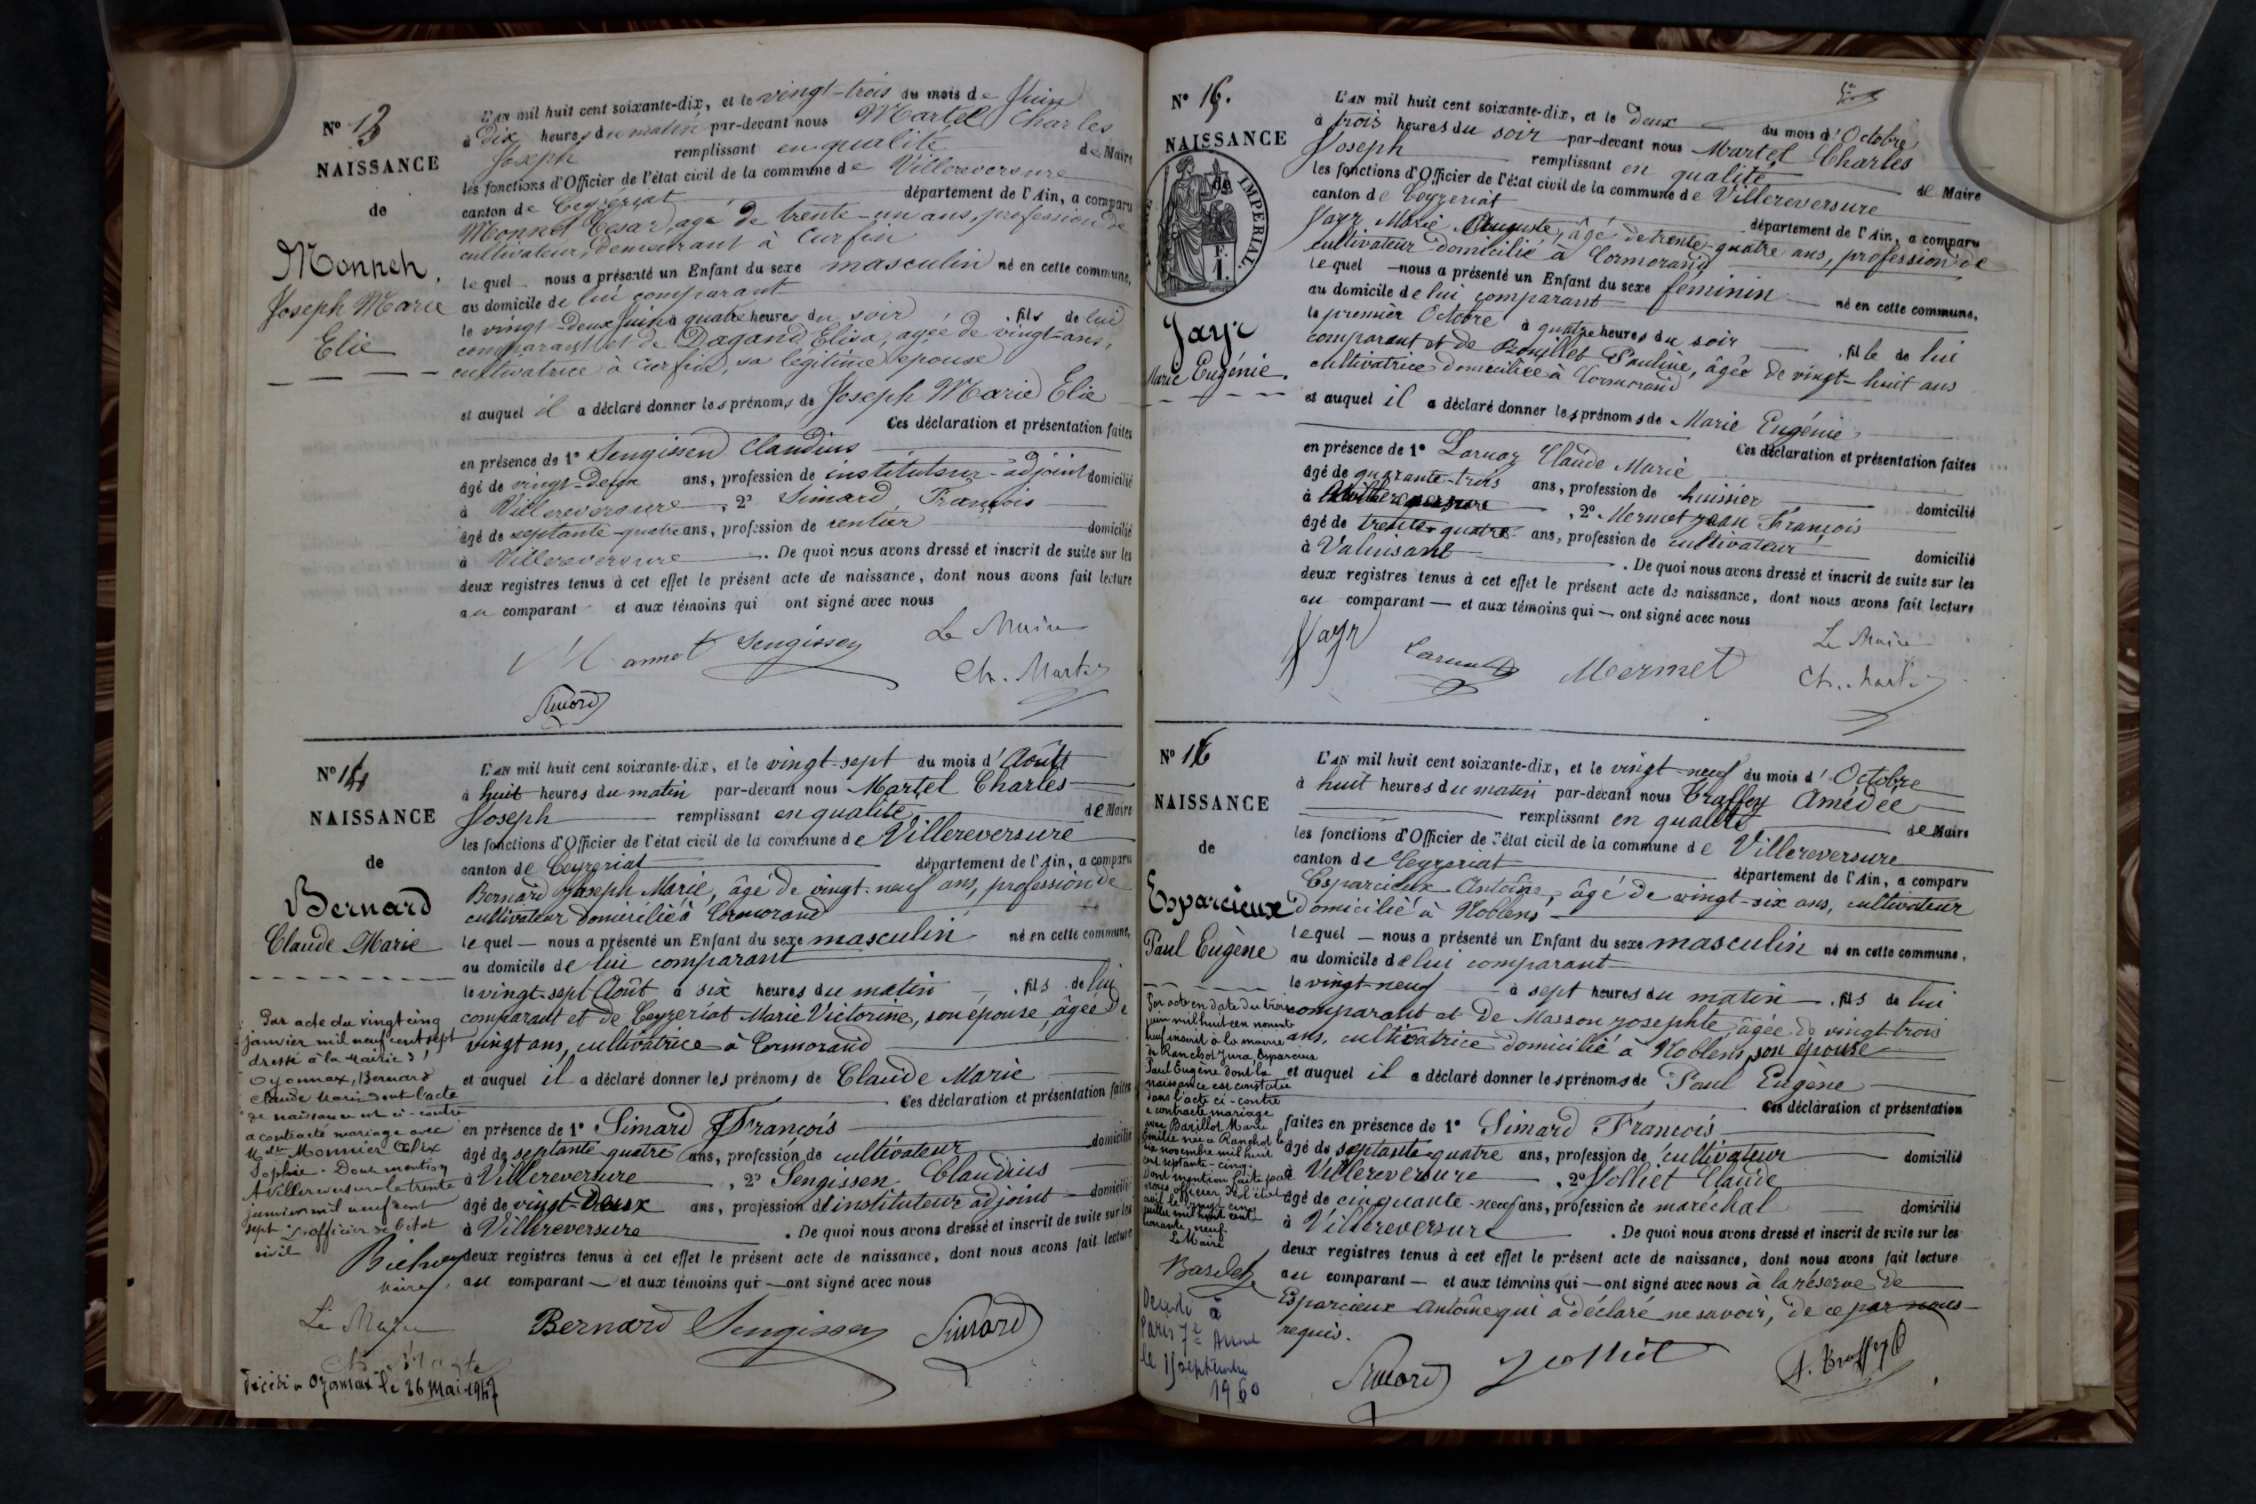 N° 13
NAISSANCE
de
Monnet
Joseph Marie
Elie
L'AN mil huit cent soixante-dix, et le vingt-trois du mois de Juin
à dix heures du matin par-devant nous Martel Charles
Joseph remplissant en qualité de Maire
les fonctions d'Officier de l'état civil de la commune de Villereversure
canton de Ceyzeriat département de l'Ain, a comparu
Monnet Cesar, agé de trente-un ans, profession de
cultivateur, demeurant à Curfin
lequel nous a présenté un Enfant du sexe masculin né en cette commune,
au domicile de lui comparant
le vingt-deux Juin à quatre heures du soir, fils de lui
comparant et de Dagand Elisa, agée de vingt-ans,
cultivatrice à Curfin, sa légitime epouse
et auquel il a déclaré donner les prénoms de Joseph Marie Elie
Ces déclaration et présentation faites
en présence de 1° Sengissen Claudius
âgé de vingt-deux ans, profession de instituteur-adjoint domicilié
à Villereversure, 2° Simard François
âgé de septante-quatre ans, profession de rentier domicilié
à Villereversure. De quoi nous avons dressé et inscrit de suite sur les
deux registres tenus à cet effet le présent acte de naissance, dont nous avons fait lecture
au comparant et aux témoins qui ont signé avec nous
Monnet Sengissen Le Maire
Ch. Martel
Simard
N° 14
NAISSANCE
de
Bernard
Claude Marie
Par acte du vingt cinq
janvier mil neuf cent sept
dressé à la Mairie d'
Oyonnax, Bernard
Claude Marie dont l'acte
de naissance est ci-contre
a contracté mariage avec
Monnier Alix
Sophie. Dont mention
A Villereversure le trente
janvier mil neuf cent
sept L'officier de l'état
civil
Maire
L'AN mil huit cent soixante-dix, et le vingt-sept du mois d'Août
à huit heures du matin par-devant nous Martel Charles
Joseph remplissant en qualité de Maire
les fonctions d'Officier de l'état civil de la commune de Villereversure
canton de Ceyzeriat département de l'Ain, a comparu
Bernard Joseph Marie, âgé de vingt-neuf ans, profession de
cultivateur domicilié à Cormorand
lequel — nous a présenté un Enfant du sexe masculin né en cette commune,
au domicile de lui comparant
le vingt-sept Août à six heures du matin, fils de lui
comparant et de Ceyzeriat Marie Victorine, son épouse, âgée de
vingt ans, cultivatrice à Cormorand
et auquel il a déclaré donner les prénoms de Claude Marie
Ces déclaration et présentation faites
en présence de 1° Simard François
âgé de septante-quatre ans, profession de cultivateur domicilié
à Villereversure, 2° Sengissen Claudius
âgé de vingt-deux ans, profession d'instituteur adjoint domicilié
à Villereversure. De quoi nous avons dressé et inscrit de suite sur les
deux registres tenus à cet effet le présent acte de naissance, dont nous avons fait lecture
au comparant — et aux témoins qui — ont signé avec nous
Le Maire Bernard Sengissen Simard
Décédé à Oyonnax le 26 Mai 1947
N° 15.
NAISSANCE
de
IMPERIAL.
F.
1.
Jayr
Marie Eugénie.
L'AN mil huit cent soixante-dix, et le deux du mois d'Octobre
à trois heures du soir par-devant nous Martel Charles
Joseph remplissant en qualité de Maire
les fonctions d'Officier de l'état civil de la commune de Villereversure
canton de Ceyzeriat département de l'Ain, a comparu
Jayr Marie Auguste, âgé de trente-quatre ans, profession de
cultivateur domicilié à Cormorand
lequel — nous a présenté un Enfant du sexe feminin né en cette commune,
au domicile de lui comparant
le premier Octobre à quatre heures du soir, fille de lui
comparant et de Bouillet Pauline, âgée de vingt-huit ans
cultivatrice domiciliée à Cormorand
et auquel il a déclaré donner les prénoms de Marie Eugénie
Ces déclaration et présentation faites
en présence de 1° Larnoz Claude Marie
âgé de quarante-trois ans, profession de huissier domicilié
à Villereversure, 2° Mermet Jean François
âgé de trente-quatre ans, profession de cultivateur domicilié
à Valuisant. De quoi nous avons dressé et inscrit de suite sur les
deux registres tenus à cet effet le présent acte de naissance, dont nous avons fait lecture
au comparant — et aux témoins qui — ont signé avec nous
Jayr Mermet Le Maire
Ch. Martel
N° 16
NAISSANCE
de
Esparcieux
Paul Eugène
Par acte en date du trois
juin mil huit cent nonante
neuf inscrit à la mairie
de Ranchot Jura, Esparcieux
Paul Eugène dont la
naissance est constatée
dans l'acte ci-contre
a contracté mariage
avec Barillot Marie
Emilie née à Ranchot le
dix novembre mil huit
cent septante-cinq.
Dont mention faite par
nous officier de l'état
civil le vingt-cinq
juillet mil huit cent
nonante-neuf
Le Maire
Décédé à
Paris 7e Arrond
le 15 septembre
1960
L'AN mil huit cent soixante-dix, et le vingt-neuf du mois d'Octobre
à huit heures du matin par-devant nous Traffey Amédée
remplissant en qualité de Maire
les fonctions d'Officier de l'état civil de la commune de Villereversure
canton de Ceyzeriat département de l'Ain, a comparu
Esparcieux Antoine, âgé de vingt-six ans, cultivateur
domicilié à Noblens
lequel — nous a présenté un Enfant du sexe masculin né en cette commune,
au domicile de lui comparant
le vingt-neuf à sept heures du matin, fils de lui
comparant et de Masson Josephte, âgée de vingt-trois
ans, cultivatrice domicilié à Noblens, son épouse
et auquel il a déclaré donner les prénoms de Paul Eugène
Ces déclaration et présentation
faites en présence de 1° Simard François
âgé de septante-quatre ans, profession de cultivateur domicilié
à Villereversure, 2° Jolliet Claude
âgé de cinquante-neuf ans, profession de maréchal domicilié
à Villereversure. De quoi nous avons dressé et inscrit de suite sur les
deux registres tenus à cet effet le présent acte de naissance, dont nous avons fait lecture
au comparant — et aux témoins qui — ont signé avec nous à la réserve de
Esparcieux Antoine qui a déclaré ne savoir, de ce par nous
requis.
Simard Jolliet A. Traffey